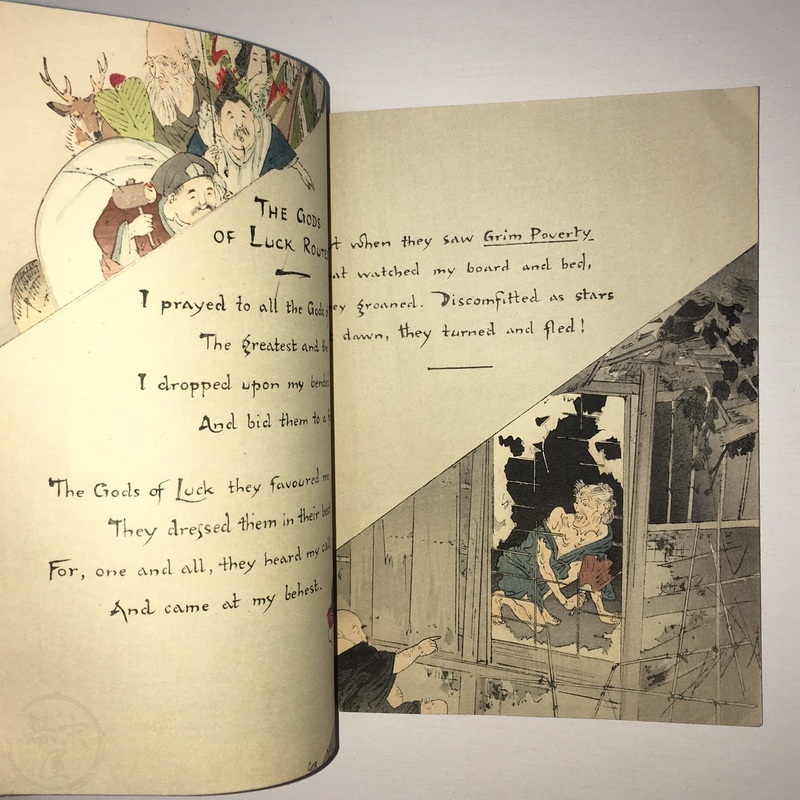 THE GODS
OF LUCK
I prayed to all the Gods
The greatest and
I dropped upon my
And bid them to a
The Gods of Luck they favoured
They dressed them in their
For, one and all, they heard my
And came at my behest.
when they saw Grim Poverty
watched my board and bed,
groaned. Discomfitted as stars
dawn, they turned and fled!